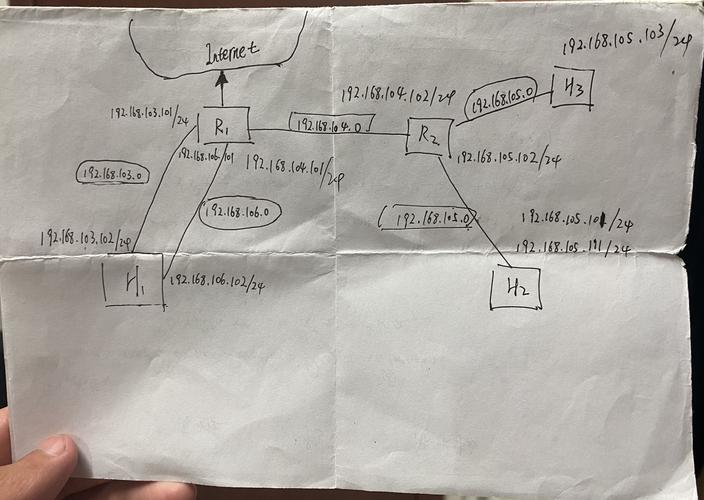 Internet
192.168.105.103/24
H3
192.168.104.102/24
192.168.105.0
192.168.103.101/24
R1
192.168.104.0
R2
192.168.106.101
192.168.104.101/24
192.168.105.102/24
192.168.103.0
192.168.106.0
192.168.105.0
192.168.105.101/24
192.168.103.102/24
192.168.105.111/24
H1
192.168.106.102/24
H2